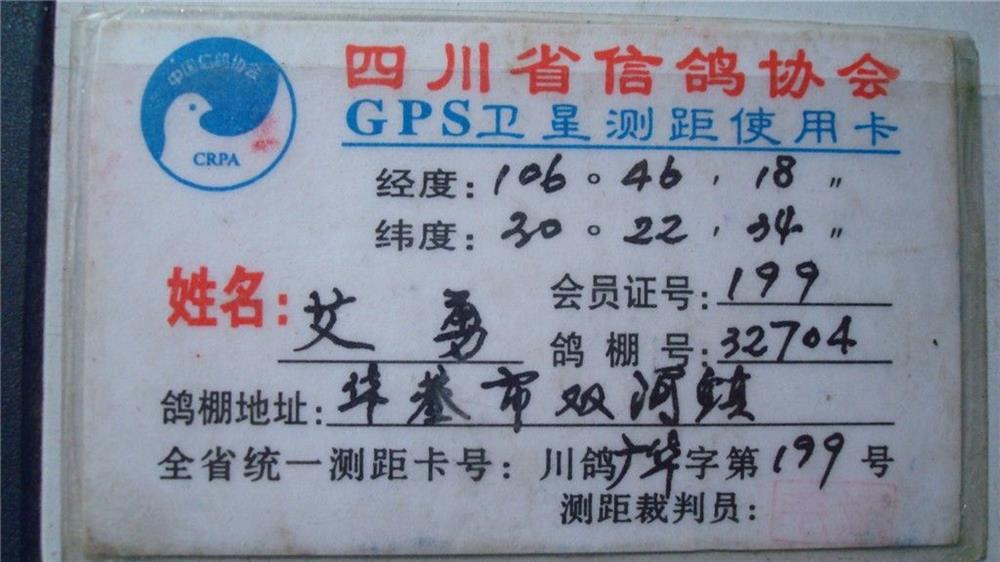 中国信鸽协会
CRPA
四川省信鸽协会
GPS卫星测距使用卡
经度：106°46′18″
纬度：30°22′34″
姓名：艾勇
会员证号：199
鸽棚号：32704
鸽棚地址：华蓥市双河镇
全省统一测距卡号：川鸽广华字第199号
测距裁判员：